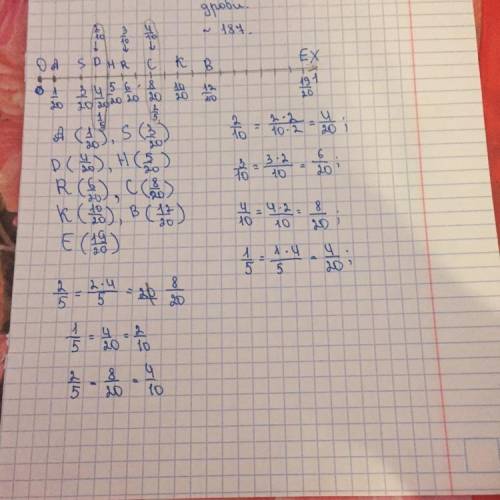 дроби.
~ 187.
2/10 3/10 4/10
O A S D H R C K B E X
0 1/20 3/20 4/20 5/20 6/20 8/20 10/20 12/20 19/20 1
1/5 2/5
A (1/20), S (3/20)
D (4/20), H (5/20)
R (6/20), C (8/20)
K (10/20), B (17/20)
E (19/20)
2/5 = 2·4/5 = 8/20
1/5 = 4/20 = 2/10
2/5 = 8/20 = 4/10
2/10 = 2·2/10·2 = 4/20;
3/10 = 3·2/10 = 6/20;
4/10 = 4·2/10 = 8/20;
1/5 = 1·4/5 = 4/20;